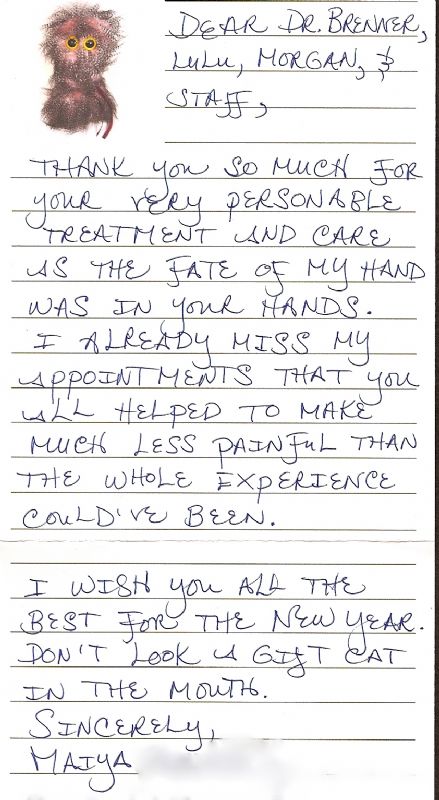 DEAR DR. BRENNER,
LULU, MORGAN, &
STAFF,
THANK YOU SO MUCH FOR
YOUR VERY PERSONABLE
TREATMENT AND CARE
AS THE FATE OF MY HAND
WAS IN YOUR HANDS.
I ALREADY MISS MY
APPOINTMENTS THAT YOU
ALL HELPED TO MAKE
MUCH LESS PAINFUL THAN
THE WHOLE EXPERIENCE
COULD'VE BEEN.
I WISH YOU ALL THE
BEST FOR THE NEW YEAR.
DON'T LOOK A GIFT CAT
IN THE MOUTH.
SINCERELY,
MAIYA